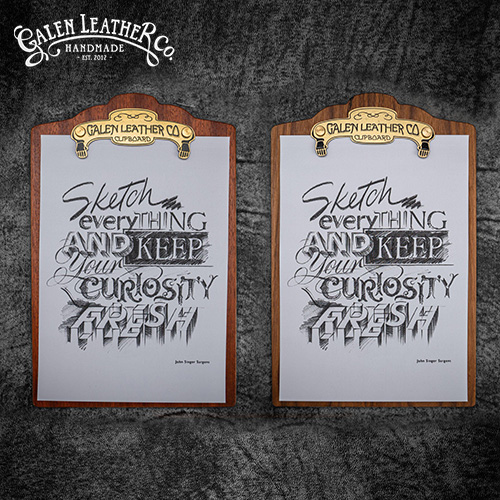 GALEN LEATHER CO.
HANDMADE
- EST. 2012 -
GALEN LEATHER CO
CLIPBOARD
Sketch
everyTHING
AND KEEP
Your
CURIOSITY
FRESH
John Singer Sargent
GALEN LEATHER CO
CLIPBOARD
Sketch
everyTHING
AND KEEP
Your
CURIOSITY
FRESH
John Singer Sargent